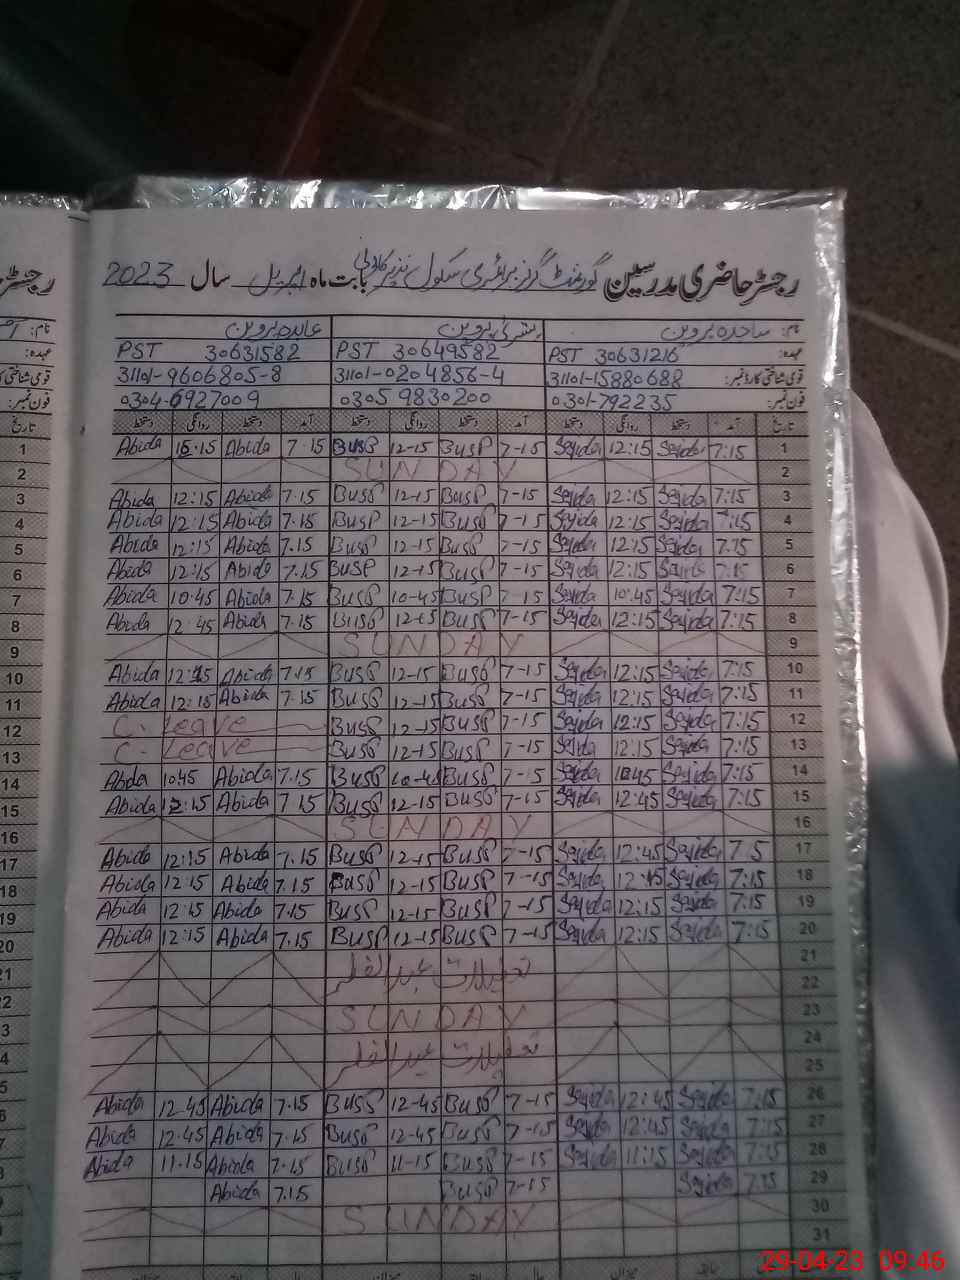 رجسٹر حاضری مدرسین گورنمنٹ گرلز پرائمری سکول نذیر کالونی بابت ماہ اپریل سال 2023
نام: ساجدہ پروین بشریٰ پروین عابدہ پروین
عہدہ: PST 30631216 PST 30649582 PST 30631582
قومی شناختی کارڈ نمبر: 31101-15880688 31101-0204856-4 31101-9606805-8
فون نمبر: 0301-792235 0305 9830200 0304-6927009
تاریخ آمد دستخط روانگی دستخط آمد دستخط روانگی دستخط آمد دستخط روانگی دستخط تاریخ
1 Abida 15.15 Abida 7.15 BUSP 12-15 BUSP 7-15 Sajida 12:15 Sajida 7:15 1
2 SUNDAY 2
3 Abida 12:15 Abida 7.15 BUSP 12-15 BUSP 7-15 Sajida 12:15 Sajida 7:15 3
4 Abida 12:15 Abida 7.15 BUSP 12-15 BUSP 7-15 Sajida 12:15 Sajida 7:15 4
5 Abida 12:15 Abida 7.15 BUSP 12-15 BUSP 7-15 Sajida 12:15 Sajida 7:15 5
6 Abida 12:15 Abida 7.15 BUSP 12-15 BUSP 7-15 Sajida 12:15 Sajida 7:15 6
7 Abida 10.45 Abida 7.15 BUSP 10-45 BUSP 7-15 Sajida 10.45 Sajida 7:15 7
8 Abida 12.45 Abida 7.15 BUSP 12-15 BUSP 7-15 Sajida 12:15 Sajida 7:15 8
9 SUNDAY 9
10 Abida 12:15 Abida 7.15 BUSP 12-15 BUSP 7-15 Sajida 12:15 Sajida 7:15 10
11 Abida 12:15 Abida 7.15 BUSP 12-15 BUSP 7-15 Sajida 12:15 Sajida 7:15 11
12 C. Leave BUSP 12-15 BUSP 7-15 Sajida 12:15 Sajida 7:15 12
13 C- Leave BUSP 12-15 BUSP 7-15 Sajida 12:15 Sajida 7:15 13
14 Abida 10.45 Abida 7.15 BUSP 10-45 BUSP 7-15 Sajida 10.45 Sajida 7:15 14
15 Abida 12:15 Abida 7.15 BUSP 12-15 BUSP 7-15 Sajida 12:45 Sajida 7:15 15
16 SUNDAY 16
17 Abida 12:15 Abida 7.15 BUSP 12-15 BUSP 7-15 Sajida 12:45 Sajida 7.5 17
18 Abida 12:15 Abida 7.15 BUSP 12-15 BUSP 7-15 Sajida 12:45 Sajida 7:15 18
19 Abida 12:15 Abida 7.15 BUSP 12-15 BUSP 7-15 Sajida 12:15 Sajida 7:15 19
20 Abida 12:15 Abida 7.15 BUSP 12-15 BUSP 7-15 Sajida 12:15 Sajida 7:15 20
21 تعطیلات عیدالفطر 21
22
23 SUNDAY 23
24 تعطیلات عیدالفطر 24
25
Abida 12.45 Abida 7.15 BUSP 12-45 BUSP 7-15 Sajida 12:45 Sajida 7:15 26
Abida 12.45 Abida 7.15 BUSP 12-45 BUSP 7-15 Sajida 12:45 Sajida 7:15 27
Abida 11.15 Abida 7.15 BUSP 11-15 BUSP 7-15 Sajida 11:15 Sajida 7:15 28
Abida 7.15 BUSP 7-15 Sajida 7:15 29
SUNDAY 30
31
29-04-23 09:46